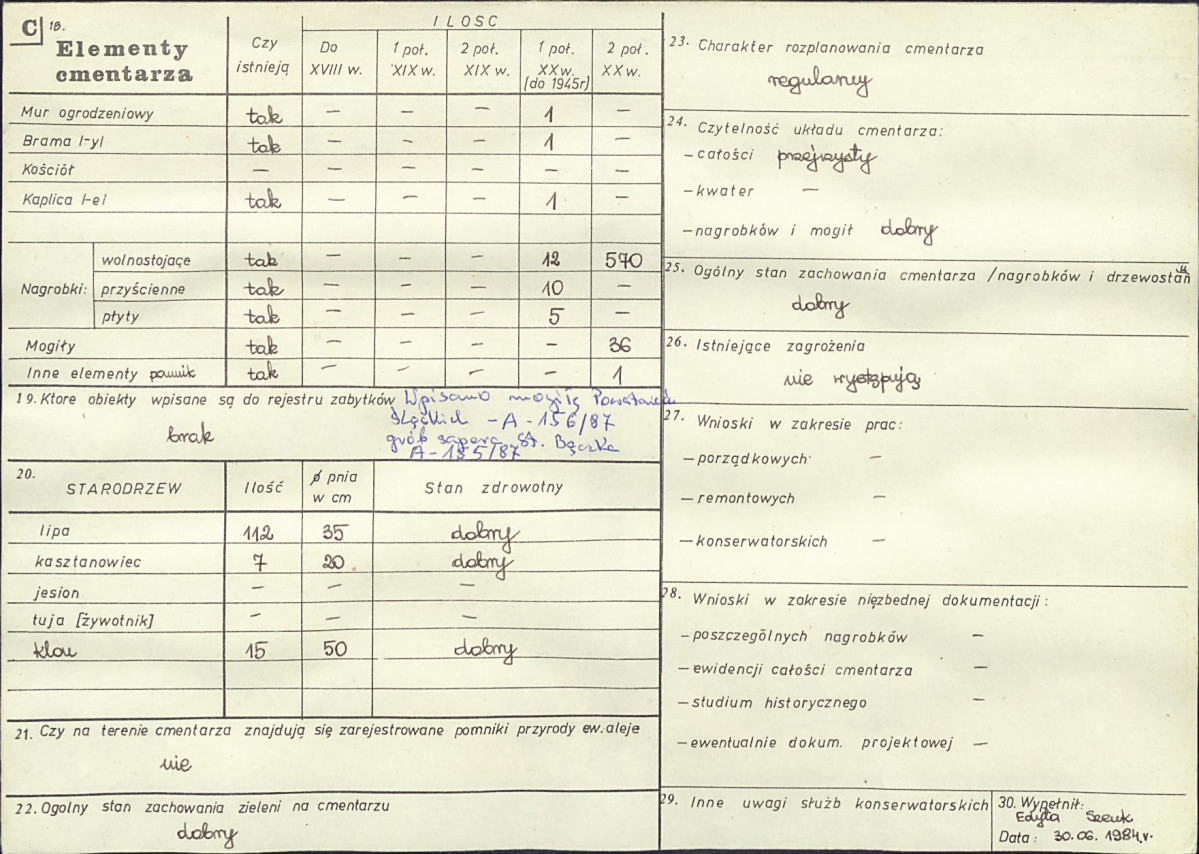 C 18.
Elementy cmentarza
Czy istnieją
ILOSC
Do XVIII w.
1 poł. XIX w.
2 poł. XIX w.
1 poł. XX w. (do 1945r)
2 poł. XX w.
Mur ogrodzeniowy tak — — — 1 —
Brama /-y/ tak — — — 1 —
Kościół — — — — — —
Kaplica /-e/ tak — — — 1 —
Nagrobki:
wolnostojące tak — — — 12 570
przyścienne tak — — — 10 —
płyty tak — — — 5 —
Mogiły tak — — — — 36
Inne elementy pomnik tak — — — — 1
19. Ktore obiekty wpisane są do rejestru zabytków Wpisano mogiłę Powstańców
Śląskich - A - 156/87
brak
grób sapera St. Bączka
A - 155/87
20.
STARODRZEW Ilość ø pnia w cm Stan zdrowotny
lipa 112 35 dobry
kasztanowiec 7 20 dobry
jesion — — —
tuja [żywotnik] — — —
klon 15 50 dobry
21. Czy na terenie cmentarza znajdują się zarejestrowane pomniki przyrody ew. aleje
nie
22. Ogolny stan zachowania zieleni na cmentarzu
dobry
23. Charakter rozplanowania cmentarza
regularny
24. Czytelność układu cmentarza:
- całości przejrzysty
- kwater —
- nagrobków i mogił dobry
25. Ogólny stan zachowania cmentarza /nagrobków i drzewostanu
dobry
26. Istniejące zagrożenia
nie występują
27. Wnioski w zakresie prac:
- porządkowych —
- remontowych —
- konserwatorskich —
28. Wnioski w zakresie nięzbednej dokumentacji:
- poszczególnych nagrobków —
- ewidencji całości cmentarza —
- studium historycznego —
- ewentualnie dokum. projektowej —
29. Inne uwagi służb konserwatorskich
30. Wypełnił:
Edyta
Data: 30.06.1984 r.